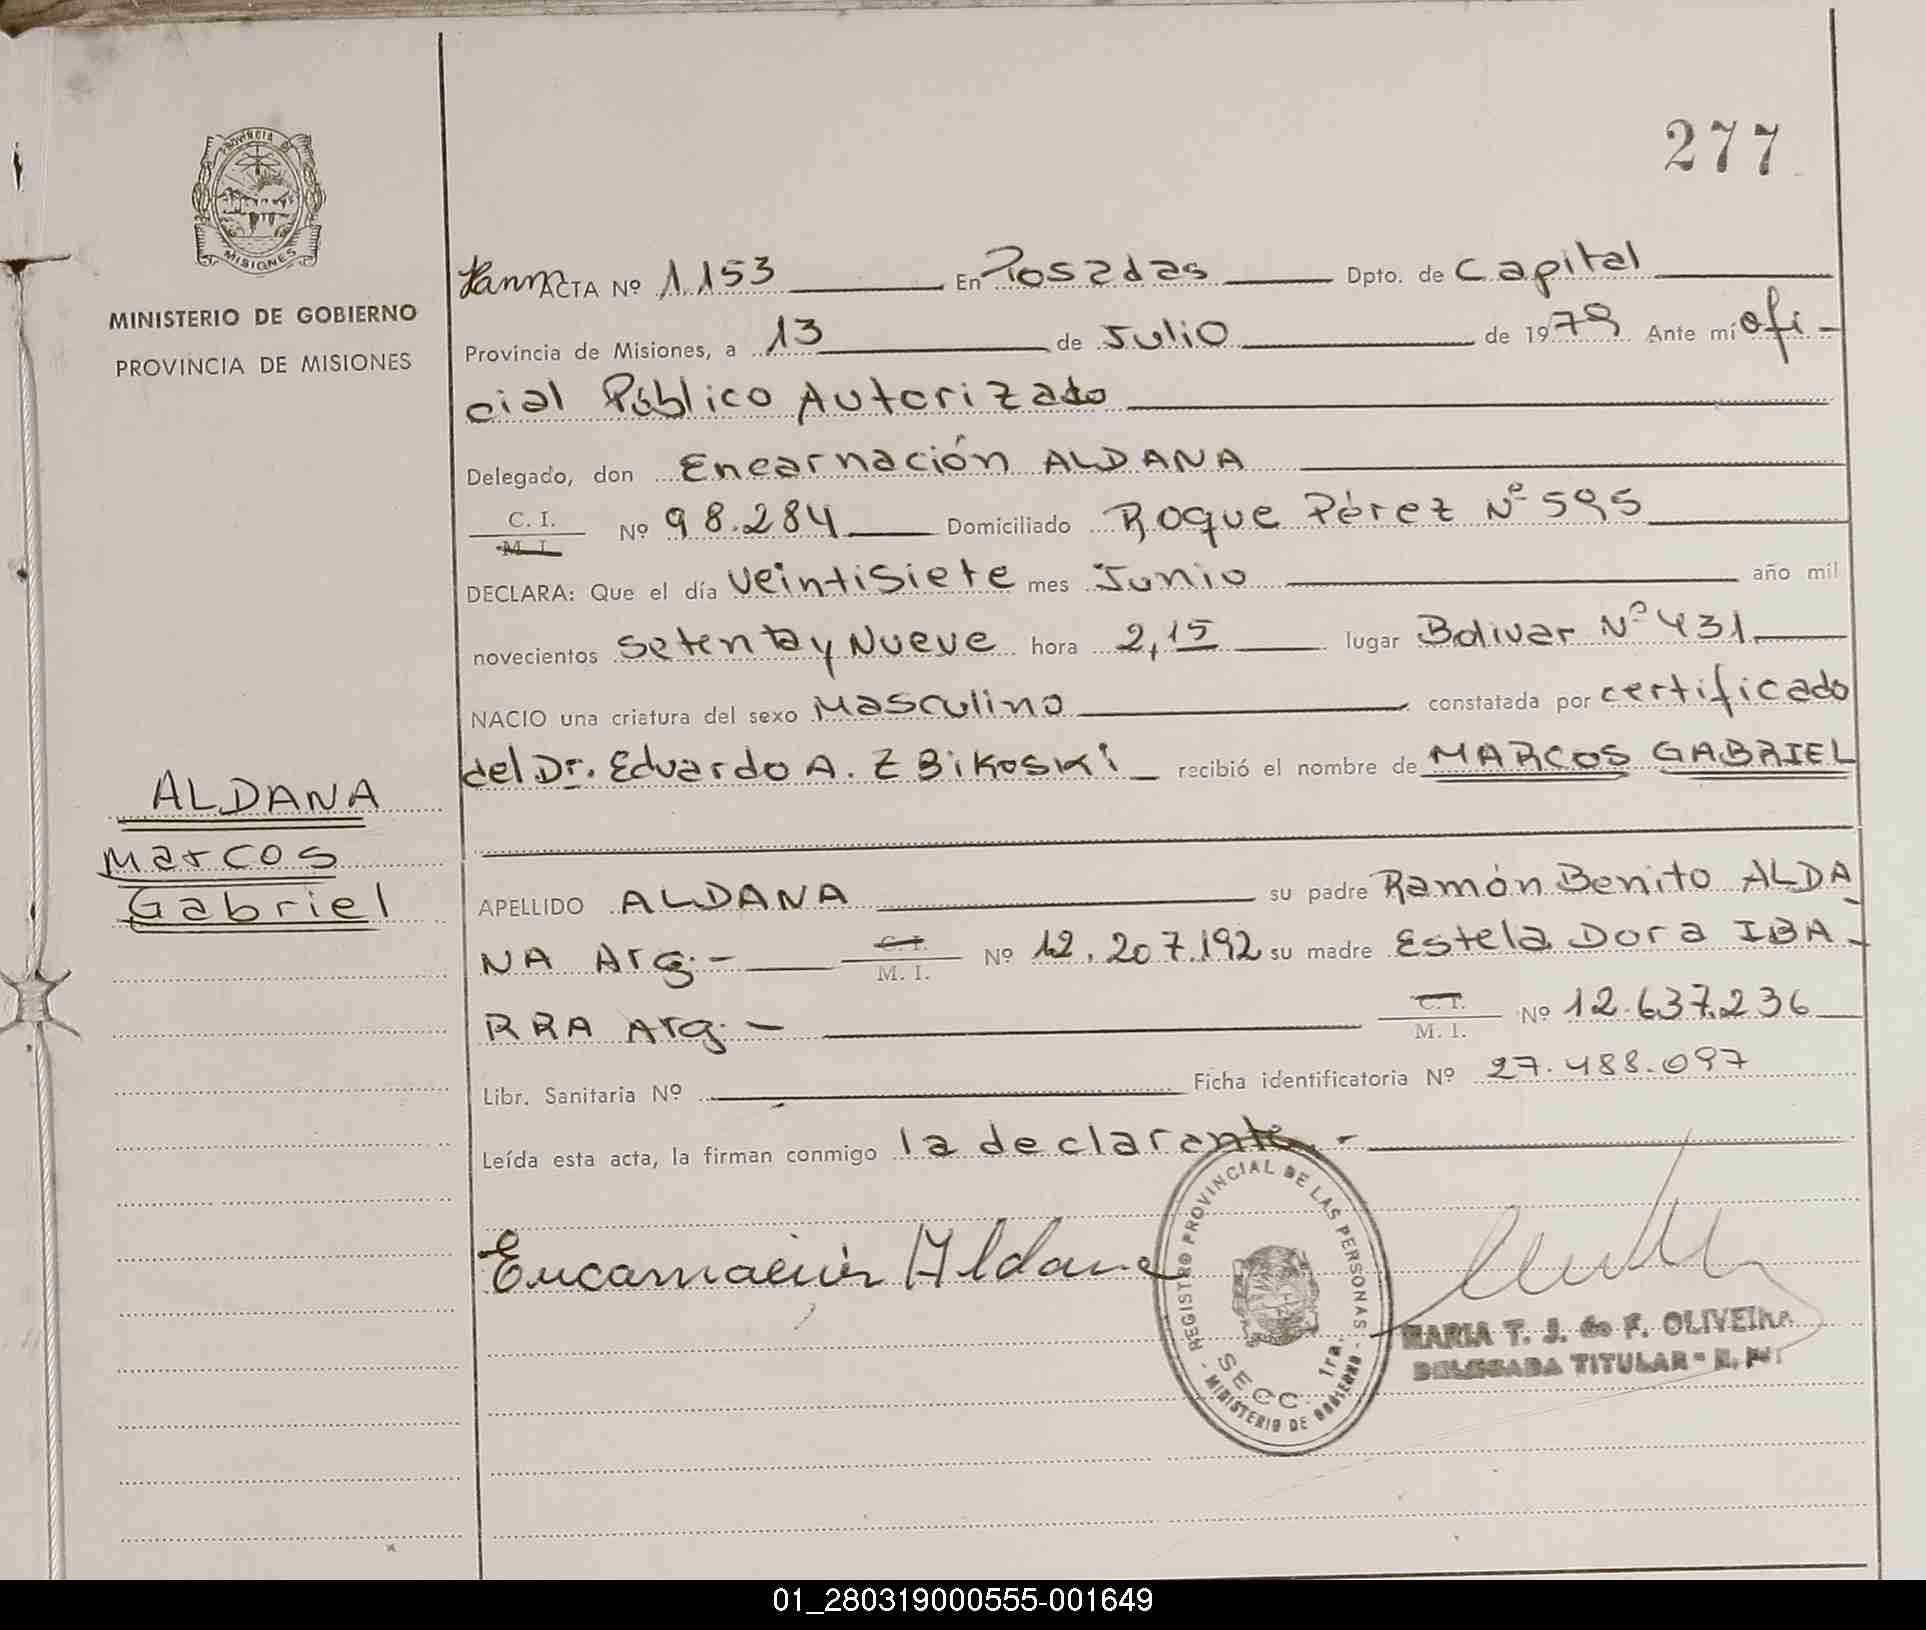 277
PROVINCIA DE
MISIONES
MINISTERIO DE GOBIERNO
PROVINCIA DE MISIONES
ACTA Nº 1.153 En Posadas Dpto. de Capital
Provincia de Misiones, a 13 de Julio de 1979 Ante mí ofi-
cial Público Autorizado
Delegado, don Encarnación ALDANA
C. I.
M. I.
Nº 98.284 Domiciliado Roque Pérez Nº 595
DECLARA: Que el día veintisiete mes Junio año mil
novecientos setenta y Nueve hora 2,15 lugar Bolivar Nº 431
NACIO una criatura del sexo Masculino constatada por certificado
del Dr. Eduardo A. ZBikoski recibió el nombre de MARCOS GABRIEL
ALDANA
Marcos
Gabriel
APELLIDO ALDANA su padre Ramón Benito ALDA
NA Arg.- C. I. M. I. Nº 12.207.192 su madre Estela Dora IBA-
RRA Arg.- C. I. M. I. Nº 12.637.236
Libr. Sanitaria Nº Ficha identificatoria Nº 27.488.097
Leída esta acta, la firman conmigo la declarante.-
Encarnación Aldana
REGISTRO PROVINCIAL DE LAS PERSONAS
SECC. 1ra.
- MINISTERIO DE GOBIERNO -
MARIA T. J. de F. OLIVEIRA
DELEGADA TITULAR
01_280319000555-001649